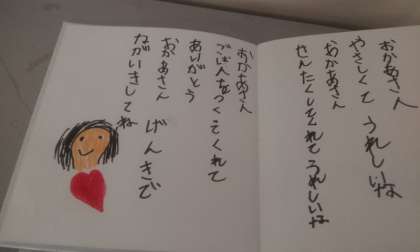 おかあさん
やさしくて うれしいな
おかあさん
せんたくしてくれて うれしいな
おかあさん
ごはんをつくてくれて
ありがとう
おかあさん げんきで
ながいきしてね